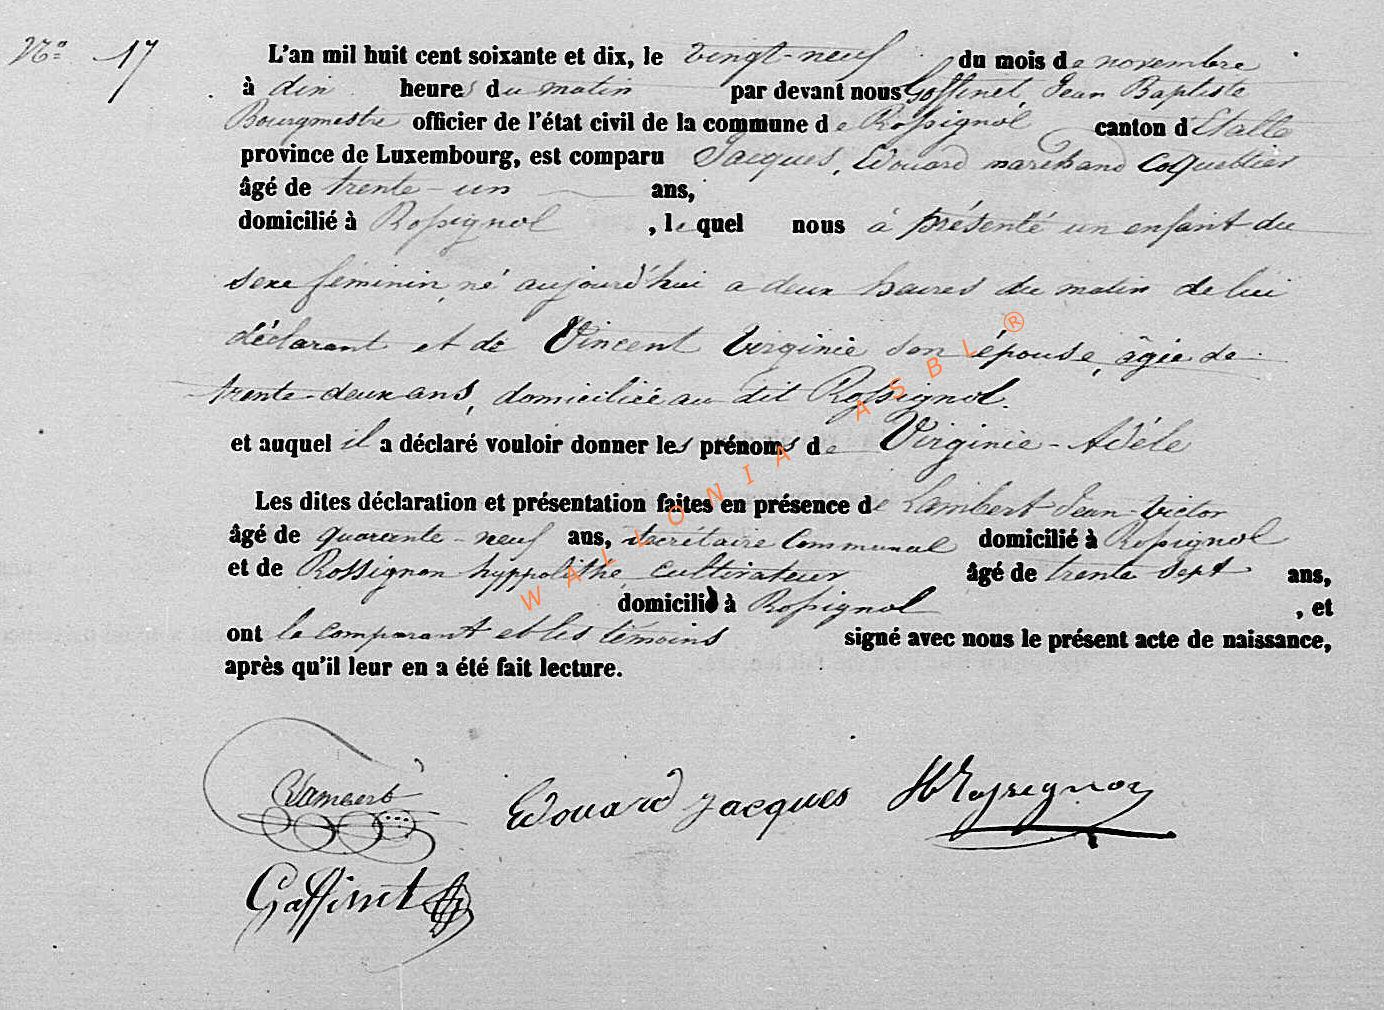 N.º 17
L'an mil huit cent soixante et dix, le vingt-neuf du mois de novembre
à dix heures du matin par devant nous Goffinet, Jean Baptiste
Bourgmestre officier de l'état civil de la commune de Rossignol canton d'Etalle
province de Luxembourg, est comparu Jacques, Edouard marchand Coquettier
âgé de trente-un ans,
domicilié à Rossignol, lequel nous à présenté un enfant du
sexe féminin, né aujourd'hui a deux heures du matin de lui
déclarant et de Vincent Virginie son épouse, âgée de
trente-deux ans, domiciliée au dit Rossignol.
et auquel il a déclaré vouloir donner les prénoms de Virginie-Adèle
Les dites déclaration et présentation faites en présence de Lambert Jean-Victor
âgé de quarante-neuf ans, secrétaire Communal domicilié à Rossignol
et de Rossignon hyppolithe, cultivateur âgé de trente sept ans,
domicilié à Rossignol, et
ont le comparant et les témoins signé avec nous le présent acte de naissance,
après qu'il leur en a été fait lecture.
WALLONIA ASBL ®
Lambert Edouard Jacques H Rossignon
Goffinet